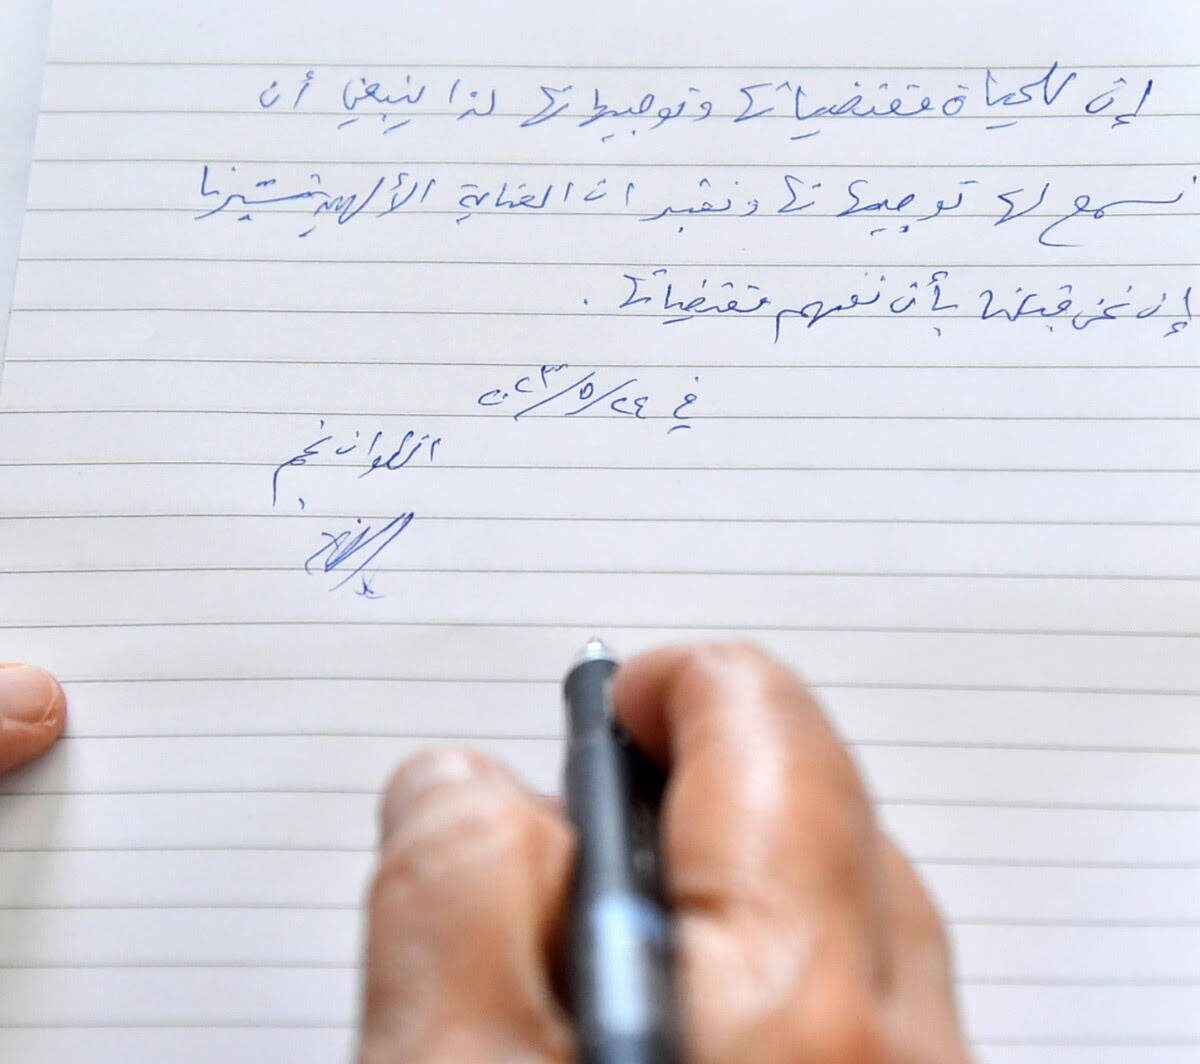 إن للحياة مقتضياتها وتوجيهاتها لذا ينبغي أن
نسمع لها توجيهاتها ونعتبر ان العناية الألهية
إن نحن قبلنا بأن نفهم مقتضياتها .
في ٢٤/٥/٢٠٢٣
انطوان نجم